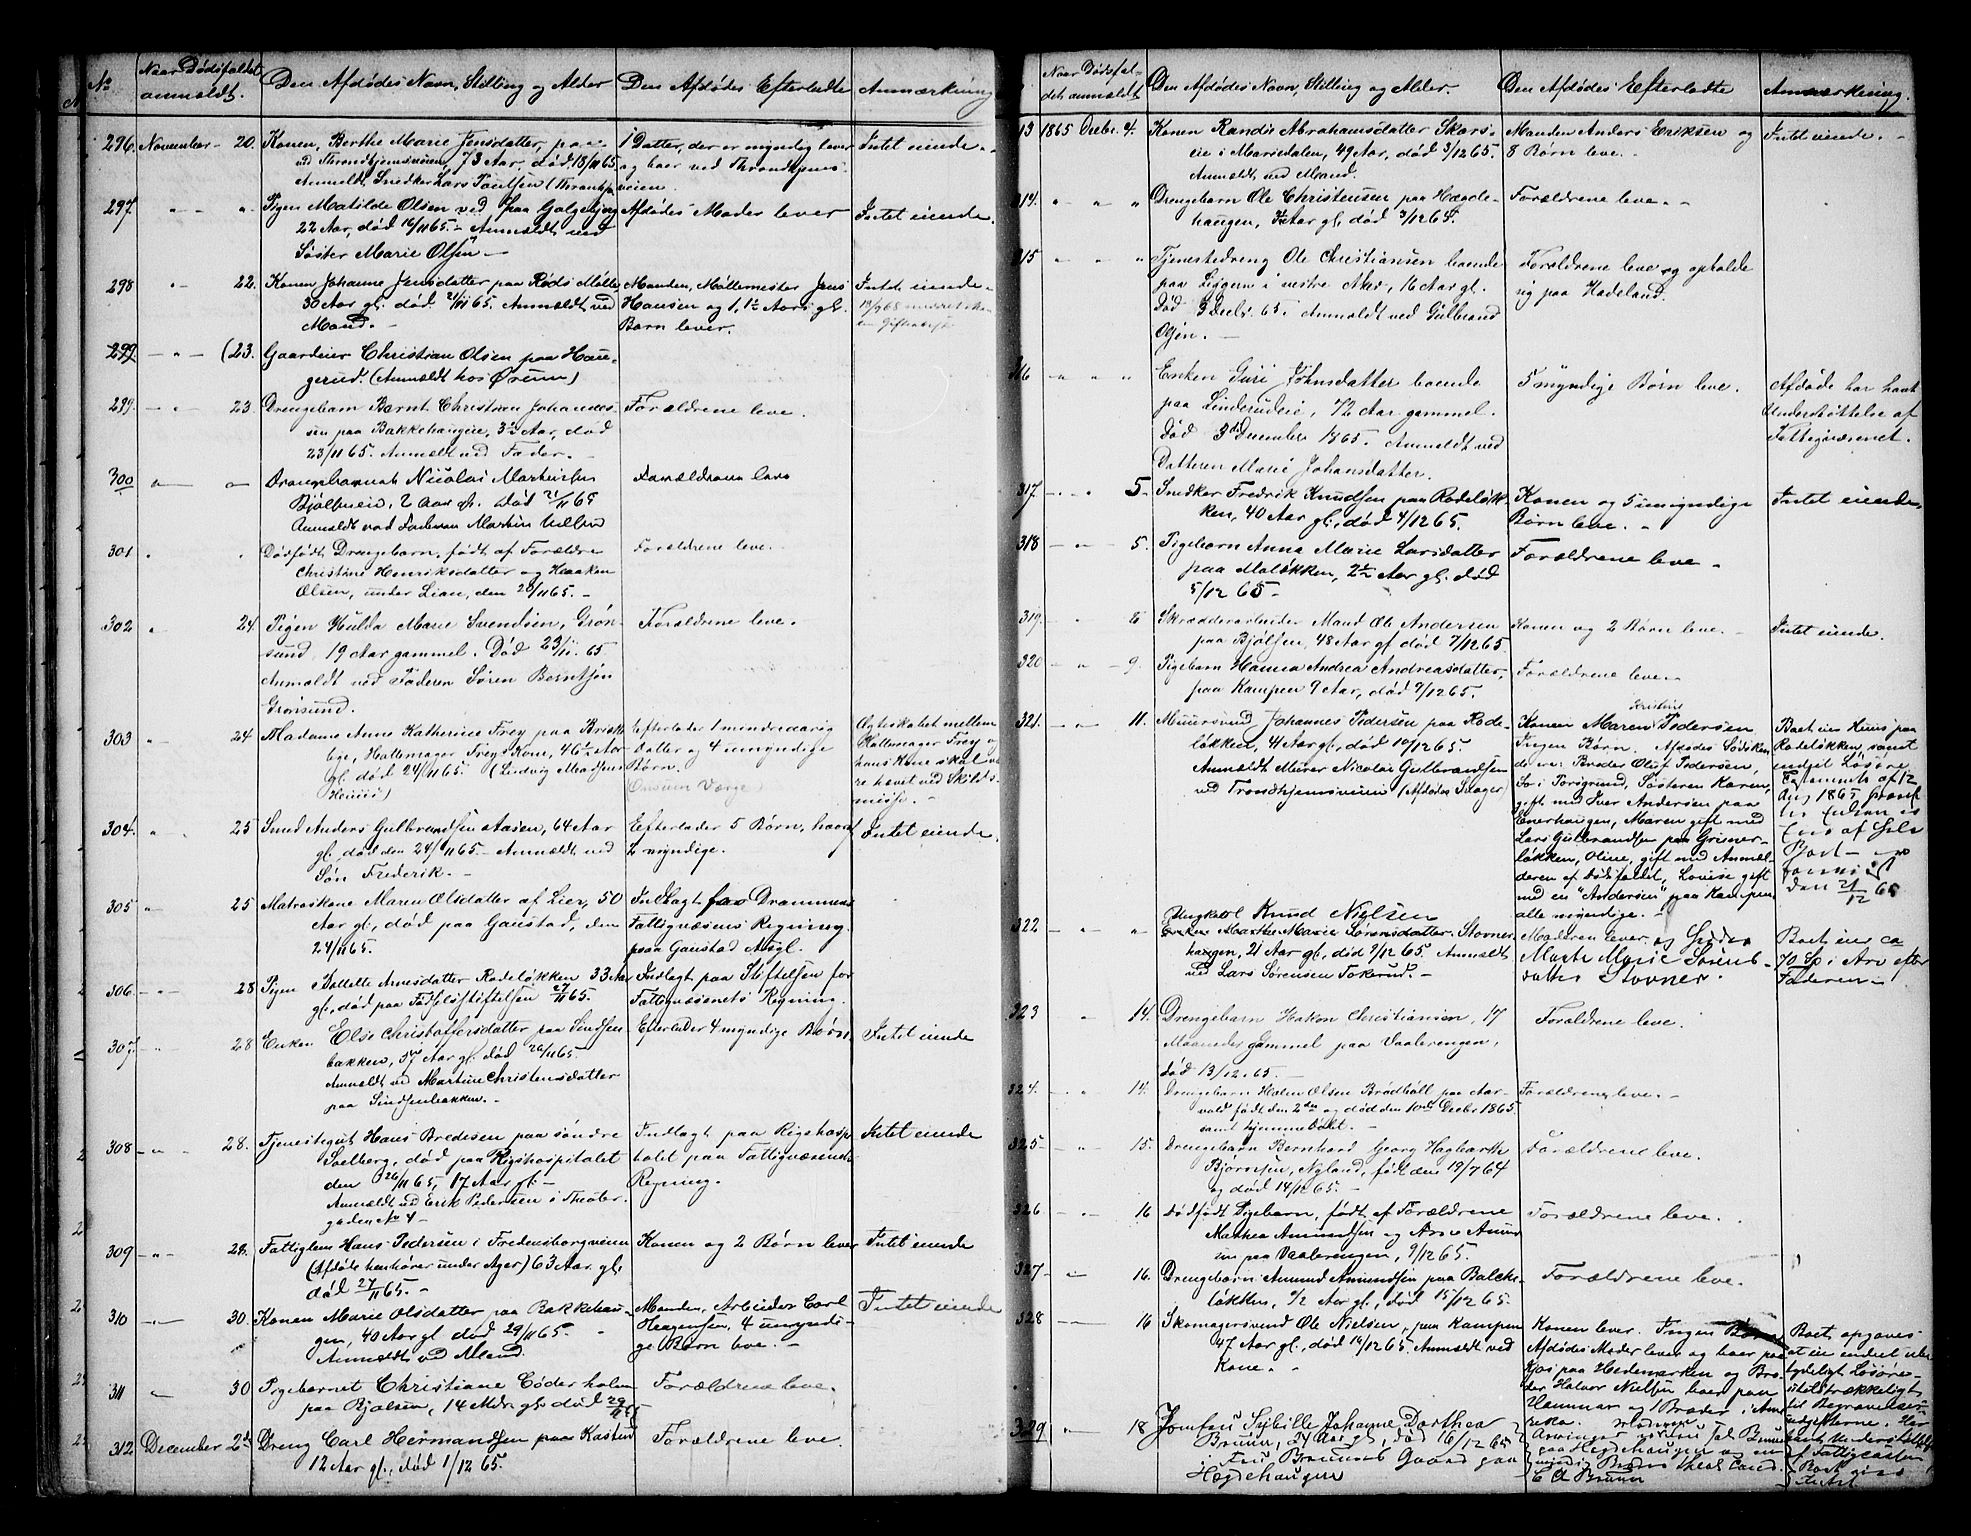 No
Naar Dødsfaldet
anmeldt.
Den Afdødes Navn, Stilling og Alder
Den Afdødes Efterladte
Anmærkning
296. November - 20. Konen, Berthe Marie Jensdatter, paa
ved Throndhjemsveien, 73 Aar, død 18/11 65
Anmeldt, Snedker Lars Paulsen (Throndhj.
1 Datter, der er myndig lever
og boer ved Throndhjems-
veien.
Intet eiende.
297. " " " Pigen Matilde Olsen ved paa Galgeberg
22 Aar, død 16/11 65. - Anmeldt ved
Søster Marie Olsen -
Afdødes Moder lever
Intet eiende.
298 " 22. Konen Johanne Jensdatter paa Røds Mølle
30 Aar gl. død 21/11 65. Anmeldt ved
Mand. -
Manden, Møllermester Jens
Hansen og 1, 1½ Aars gl.
Barn lever.
Intet eiende.
299. - " - (23. Gaardeier Christian Olsen paa Hau-
gerud. (Anmeldt hos Ørum)
299. - " 23. Drengebarn Bernt Christian Johannes-
sen paa Bakkehaugen, 3½ Aar, død
23/11 65. Anmeldt ved Fader. -
Forældrene leve.
300 " - " Drengebarnet Nicolai Martinsen
Bjølseneie, 2 Aar gl. død 21/11 65
Anmeldt ved Faderen Martin
Forældrene leve
301 " " Dødfødt Drengebarn, født af Forældre
Christine Henriksdatter og Haaken
Olsen, under Lian, den 20/11 65. -
Forældrene leve.
302 " 24 Pigen Hulda Marie Svendsen, Grøn-
sund, 19 Aar gammel. Død 23/11. 65
Anmeldt ved Faderen Søren Berntsen
Grønsund.
Forældrene leve.
303 " 24 Madame Anne Katherine Frey paa Brisk-
eby, Hattemager Freys Kone, 46½ Aar
gl. død 24/11 65. (Ludvig Madsens
Huus)
Efterlader 1 mindreaarig
Datter og 4 umyndige
Børn.
Ægteskabet mellem
Hattemager Frey og
hans Kone skal væ-
re hævet ved Skilds-
misse. -
304. " 25 Smed Anders Gulbrandsen Aasen, 64 Aar
gl., død den 24/11 65. - Anmeldt ved
Søn Frederik. -
Efterlader 5 Børn, hvoraf
2 myndige.
Intet eiende
305 " 25 Matroskone Maren Olsdatter af Lier, 50
Aar gl., død paa Gaustad, den
24/11 65.
Indlagt for Drammens
Fattigvæsens Regning
paa Gaustad Asyl.
306. - " - 28 Pigen Arnesdatter Rodeløkken 33 Aar
gl., død paa Fødselsstiftelsen 27/11 65.
Indlagt paa Stiftelsen for
Fattigvæsenets Regning.
307. - " - 28 Enken Else Christoffersdatter paa Sindsen
bakken, 57 Aar gl. død 26/11 65.
Anmeldt ved Martine Christensdatter
paa Sindsenbakken. -
Efterlader 4 myndige Børn
Intet eiende
308 - " - 28. Tjenestegut Hans Bredesen paa søndre
Solberg, død paa Rigshospitalet
den 26/11 65, 17 Aar gl. -
Anmeldt ved Erik Pedersen i Theater-
gaden No 4 -
Indlagt paa Rigshosp
italet paa Fattigvæsenets
Regning.
Intet eiende
309 - " - 29. Fattiglem Hans Pedersen i Fredensborgveien
(Afdøde henhører under Ager) 63 Aar gl.
død 27/11 65. -
Konen og 2 Børn lever
Intet eiende
310 - " - 30. Konen Marie Olsdatter paa Bakkehau-
gen, 40 Aar gl. død 29/11 65.
Anmeldt ved Mand.
Manden, Arbeider Carl
Haagensen, 4 umyndi-
ge Børn leve. -
Intet eiende
311 - 30 Pigebarnet Christiane Cøderholm
paa Bjølsen, 14 Mdr. gl. død 29/11 65
Forældrene leve.
312 December 2den Dreng Carl Hermandsen paa Kastend
12 Aar gl., død 1/12 65.
Forældrene leve.
Naar Dødsfal-
det anmeldt
Den Afdødes Navn, Stilling og Alder.
Den Afdødes Efterladte
Anmærkning.
13 1865 Decbr. 4. Konen Randi Abrahamsdatter Skars-
eie i Maridalen, 49 Aar, død 3/12 65.
Anmeldt ved Mand.
Manden Anders Eriksen og
8 Børn leve. -
Intet eiende. -
314. " " " Drengebarn Ole Christensen paa Hægde-
haugen, Aar gl. død 3/12 65.
Forældrene leve. -
315 " " " Tjenestedreng Ole Christiansen boende
paa Liggern i vestre Aker, 16 Aar gl.
Død 3 Decbr. 65. Anmeldt ved Gulbrand
Olsen. -
Forældrene leve og opholde
sig paa Hadeland.
316 - " " " Enken Guri Johnsdatter boende
paa Linderudeie, 72 Aar gammel.
Død 3die December 1865. Anmeldt ved
Datteren Marie Johansdatter.
5 myndige Børn leve.
Afdøde har havt
Understøttelse af
Fattigvæsenet.
317 - " - 5. Snedker Fredrik Knudsen paa Rodeløk-
ken, 40 Aar gl., død 4/12 65.
Konen og 5 umyndige
Børn leve. -
Intet eiende,
318 - " - 5. Pigebarn Anna Marie Larsdatter
paa Maløkken, 2½ Aar gl. død
5/12 65 -
Forældrene leve -
319 - " - 8 Skrædderarbeider Mand Ole Andersen
paa Bjølsen, 48 Aar gl død 7/12 65
Konen og 2 Børn leve. -
Intet eiende.
320 - " - 9. Pigebarn Hanna Andrea Andreasdatter,
paa Kampen 9 Aar, død 9/12 65.
Forældrene leve. -
321. - " - 11. Muursvend Johannes Pedersen paa Rode-
løkken, 41 Aar gl., død 10/12 65.
Anmeldt Murer Nicolai Gulbrandsen
ved Trondhjemsveien (Afdødes Svoger)
Konen Maren Pedersen
Ingen Børn. Afdødes Sødsken
de ere: Broder Oluf Pedersen,
bo i Porsgrund, Søsteren Karen,
gift med Iver Andersen paa
Enerhaugen, Maren gift med
Lars Gulbrandsen paa Grüner-
løkken, Oline, gift med Anmel-
deren af Dødsfaldet, Lovise gift
med en "Andersen" paa Kampen
alle myndige. -
Boet eier Huus paa
Rodeløkken, samt
endeel Løsøre
Testament af 12
Aug 1865
den 21/12 65
322 " " Ungkarl Knud Nielsen
Enken Marthe Marie Sørensdatter. Stovner-
haugen, 21 Aar gl., død 9/12 65. Anmeldt
ved Lars Sørensen Fokerud. -
Moderen lever.
Marte Marie Sørens-
datter Stovner.
Boet eier ca
70 Sp i Arv efter
Faderen -
323 " 14. Drengebarn Hakon Christiansen, 17
Maaneder gammel paa Vaalerengen,
død 13/12. 65. -
Forældrene leve.
324. - " 14. Drengebarn Halvor Olsen Brødhøll paa Aar-
vold født den 2den og død den 10de Decbr 1865.
samt hjemmedøbt. -
Forældrene leve. -
325 - " 15. Drengebarn Bernhard Georg Hagbarth
Bjørnsen, Nyland, født den 19/7 64
og død 14/12 65. -
Forældrene leve.
326 - " - 16 Dødfødt Pigebarn, født af Forældrene
Mathea Amundsen og Arve Amund
sen paa Vaalerengen, 9/12 65.
Forældrene leve. .
327 - " - 16. Drengebarn Amund Amundsen paa Balcke-
løkken, ½ Aar gl., død 15/12 65.
Forældrene leve.
328 - 16 Skomagersvend Ole Nielsen, paa Kampen
47 Aar gl., død 14/12 65. Anmeldt ved
Kone. -
Konen lever. Ingen Børn
Afdødes Moder lever og boer paa
paa Hedemarken og Bro-
der Halvor Nielsen boer paa
Hammar og 1 Broder i Ame
rika.
Boet opgaves
at eie endeel ube-
tydeligt Løsøre
utilstrækkeligt
til Begravelses-
udgifterne. Har
havt Understøttelse
af Fattigcassen
329 - 18 Jomfru Sybille Johanne Dorthea
Bruun, Aar gl., død 16/12 65
i Fru Bruuns Gaard paa
Hægdehaugen
Arvinger
paa Hægdehaugen og en
myndig Broder Cand.
C. A. Bruun